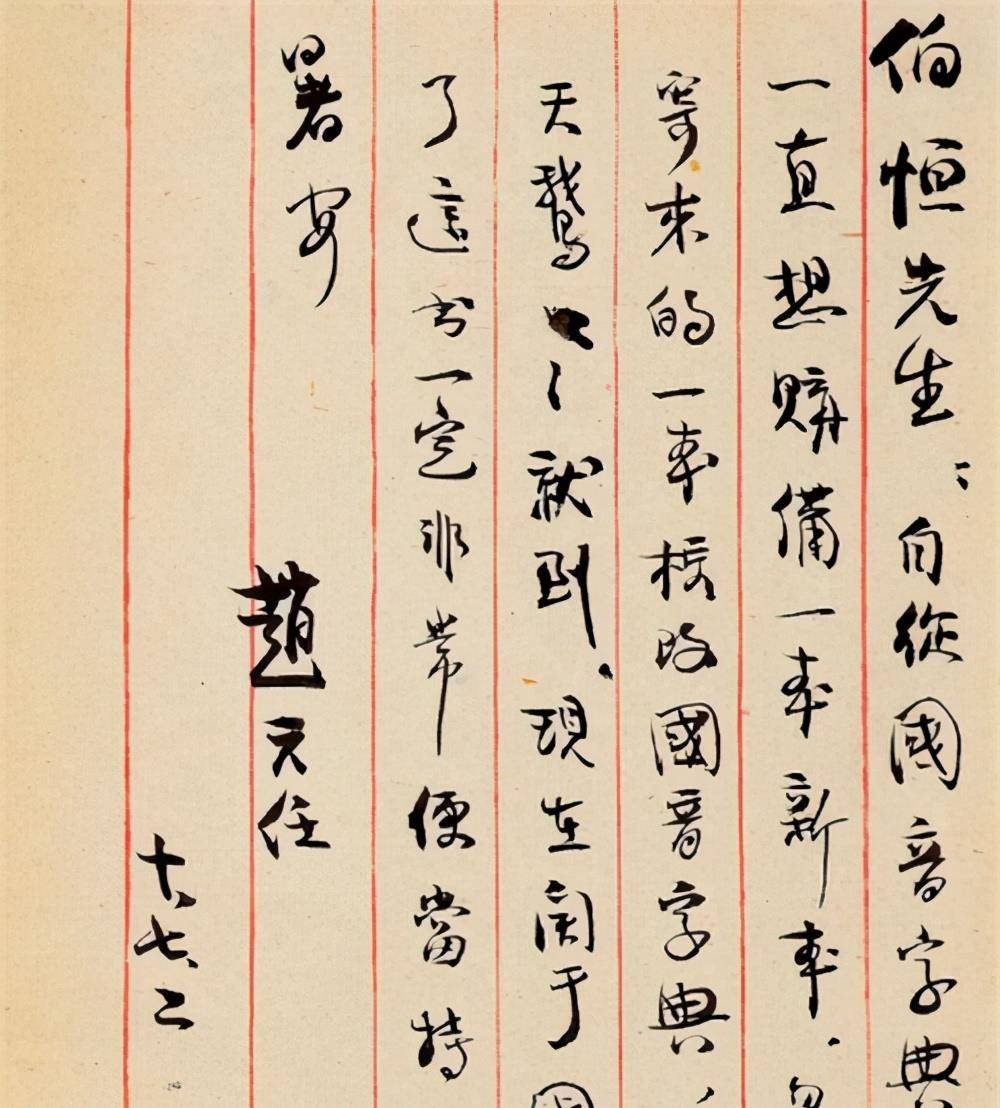 伯恒先生：自從國音字典
一直想購備一本新本．
寄來的一本校改國音字典，
天鵝就到．現在关于
了這书一定非常便當特
暑安
趙元任
十，七，二